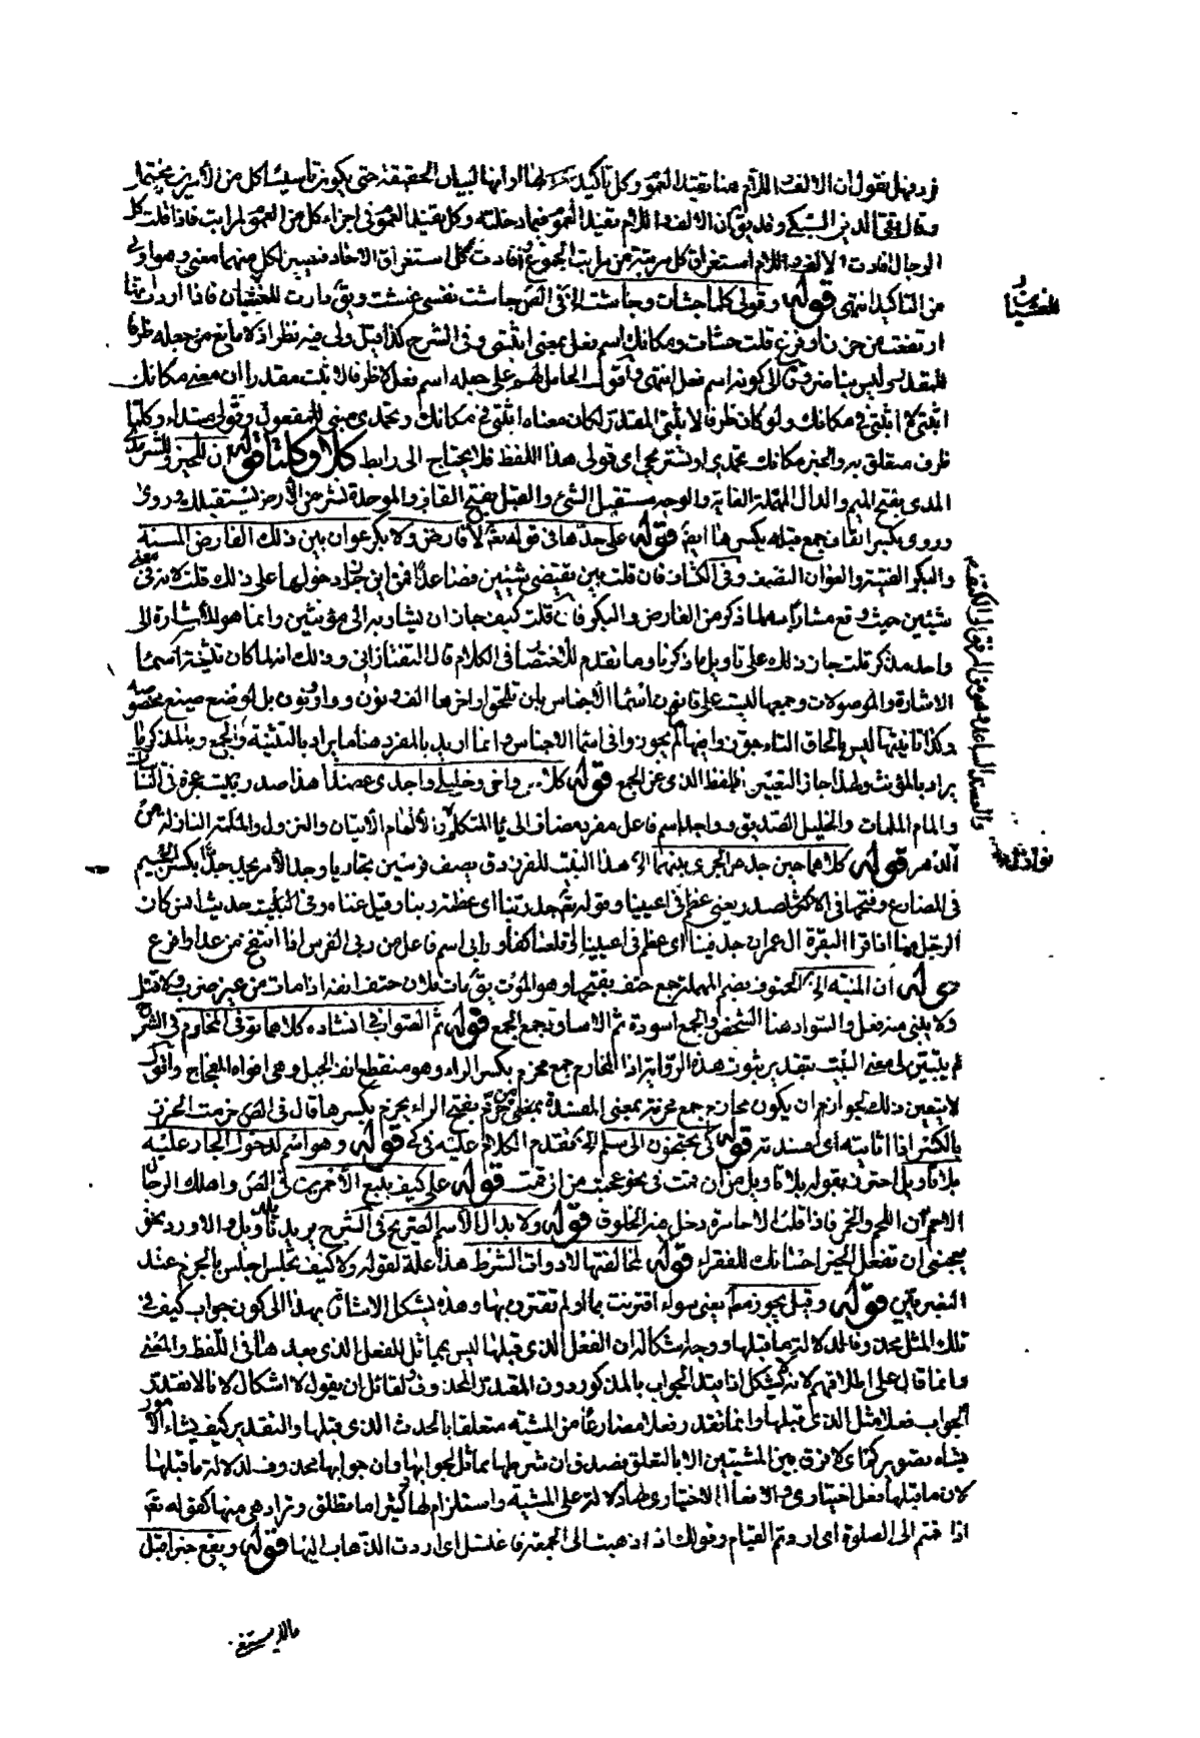 فرد فهل نقول ان الالف واللام هنا تفيد العموم وكل تأكيد لها او انها لبيان الحقيقة حتى يكون تأسيسا كل من الأمرين محتمل
وقال تقي الدين السبكي وقد يقال ان الالف واللام تفيد العموم فيما دخلته وكل يفيد العموم في اجزاء كل من العموم لمراتب فاذا قلت كل
الرجال افادت الالف واللام استغراق كل مرتبة من مراتب الجموع وافادت كل استغراق الاحاد فيصير لكل منهما معنى وهو اولى
من التاكيد انتهى قوله وقولي كلما جشأت وجاشت الخ في الص جاشت نفسي غشت ويق دارت للغثيان فاذا اردت انها
ارتفعت من حزن او فزع قلت جشأت ومكانك اسم فعل بمعنى اثبتي وفي الشرح كذا قيل ولي فيه نظر اذ لا مانع من جعله ظرفا
للمقدر وليس بنا ضرورة الى كونه اسم فعل انتهى واقول الحامل لهم على جعله اسم فعل لا ظرفا لاثبت مقدرا ان معنى مكانك
اثبتي لا اثبتي في مكانك ولو كان ظرفا لاثبتي المقدر لكان معناه اثبتي في مكانك وتحمدي مبني للمفعول وقولي مبتدا وكلما
ظرف متعلق به والخبر مكانك تحمدي او تستريحي اى قولي هذا اللفظ فلا يحتاج الى رابط كلا وكلتا قوله ان للخير وللشر مدى
المدى بفتح الميم والدال المهملة الغاية والوجه مستقبل الشئ والقبل بفتح القاف والموحدة لنشز من الأرض يستقبلك وروى
وروى بكسر القاف جمع قبله بكسرها ايضا قوله على حدها في قوله تعم لا فارض ولا بكر عوان بين ذلك الفارض المسنة
والبكر الفتية والعوان النصف وفي الكشاف فان قلت بين يقتضي شيئين فصاعدا فمن اين جاز دخولها على ذلك قلت لانه في معنى
شيئين حيث وقع مشارا به الى ما ذكر من الفارض والبكر فان قلت كيف جاز ان يشار به الى مؤنثين وانما هو للأشارة الى
واحد مذكر قلت جاز ذلك على تاويل ما ذكرنا وما تقدم للأختصار في الكلام قال التفتازاني وذلك انه لما كان تثنية اسماء
الاشارة والموصولات وجمعها ليست على قانون اسماء الأجناس بان تلحق اواخرها الف ونون وواو ونون بل لوضع صيغ مخصوصة
وكذا تانيثها ليس بالحاق التاء جوزوا فيها ما لم يجوزوا في اسماء الاجناس وانما اريد بالمفرد هنا ما يراد بالتثنية والجمع وبالمذكر ما
يراد بالمؤنث ولهذا جاز التعبير بلفظ الذي عن الجمع قوله كلا اخي وخليلي واجدي عضدا هذا صدر بيت عجزه في النائبات
والمام الملمات والخليل الصديق وواجد اسم فاعل مفرد مضاف الى ياء المتكلم والألمام الأتيان والنزول والملمة النازلة من
الدهر قوله كلاهما حين جد الجري بينهما الخ هذا البيت للفرزدق يصف فرسين تجاريا وجد الأمر يجد جدا بكسر الجيم
في المضارع وفتحها في الاكثر المصدر يعني عظم في اعيننا وقوله تعم جد ربنا اى عظمة ربنا وقيل غناه وفي البيت حديث انس كان
الرجل منا اذا قرا البقرة وال عمران جد فينا اى عظم في اعيننا الخ قلعنا كفا ورابي اسم فاعل من ربى الفرس اذا انتفخ من عدا وافزع
قوله ان المنية الخ الحتوف بضم المهملة جمع حتف بفتحها وهو الموت يق مات فلان حتف انفه اذا مات من غير ضرب ولا قتل
ولا يبنى منه فعل والسواد هنا الشخص والجمع اسودة ثم الاساود جمع الجمع قوله ثم الصواب في انشاده كلاهما يوفى المخارم في الشرح
لم يتبين لي معنى البيت بتقدير ثبوت هذه الرواية اذ المخارم جمع مخرم بكسر الراء وهو منقطع انف الجبل وهي افواه الفجاج واقول
لا يتعين ذلك لجواز ان يكون مخارم جمع مخرمة بمعنى المفسدة بفتح الراء يخرم بكسرها قال في الص خرمت الخرز
بالكسر اذا اثأيته اى افسدته قوله كي تجنحون الى سلم الخ تقدم الكلام عليه في كي قوله وهو اسم لدخول الجار عليه
بلا تأويل احترز بقوله بلا تاويل من ان قمت في نحو عجبت من ان قمت قوله على كيف تبيع الأحمرين في الص واهلك الرجال
الاحمران اللحم والخمر فاذا قلت الاحامرة دخل فيه الخلوق قوله ولا بدال الأسم الصريح في الشرح يريد بلا تأويل والا ورد نحو
يعجبني ان تفعل الخير احسانك للفقراء قوله لمخالفتها لادوات الشرط هذا علة لقوله ولا كيف تجلس اجلس بالجزم عند
البصريين قوله وقيل يجوز مط يعني سواء اقترنت بما او لم تقترن بها وهذه يشكل الاشارة بهذا الى كون جواب كيف في
تلك المثل محذوفا لدلالة ما قبلها ووجه اشكاله ان الفعل الذي قبلها ليس بمماثل للفعل الذي بعدها في اللفظ والمعنى
وانما قال على اطلاقهم لانه لا يشكل اذا قيد الجواب بالمذكور دون المقدر المحذوف ولقائل ان يقول لا اشكال لانا لا نقدر
الجواب فعلا مثل الذي قبلها وانما نقدر فعلا مضارعا من المشية متعلقا بالحدث الذي قبلها والتقدير كيف يشاء الامور
يشاء تصويركم اى لا فرق بين المشيتين الا بالتعلق فصدق ان شرطها مماثل لجوابها وان جوابها محذوف لدلالة ما قبلها
لان ما قبلها فعل اختياري والافعال الاختيارى لها دلالة على المشية واستلزام لها كثيرا ما تطلق وتراد هي منها كقوله تعم
اذا قمتم الى الصلوة اى اردتم القيام وقولك اذا ذهبت الى الجمعة فاغتسل اى اردت الذهاب اليها قوله ويقع خبرا قبل